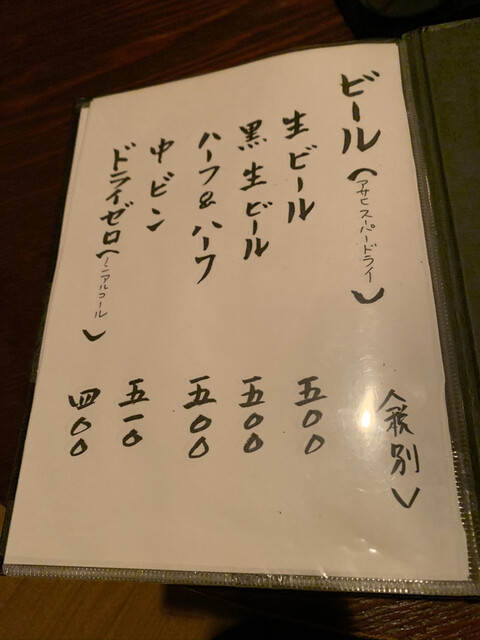 ビール(アサヒスーパードライ)
(税別)
生ビール 五〇〇
黒生ビール 五〇〇
ハーフ&ハーフ 五〇〇
中ビン 五一〇
ドライゼロ(ノンアルコール) 四〇〇